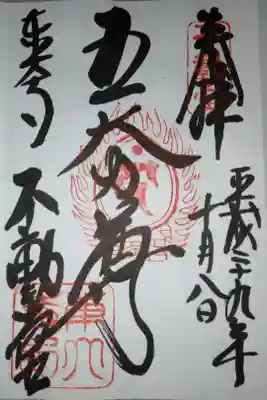 奉拝
平成二九年
十月八日
五大
東大寺
不動堂